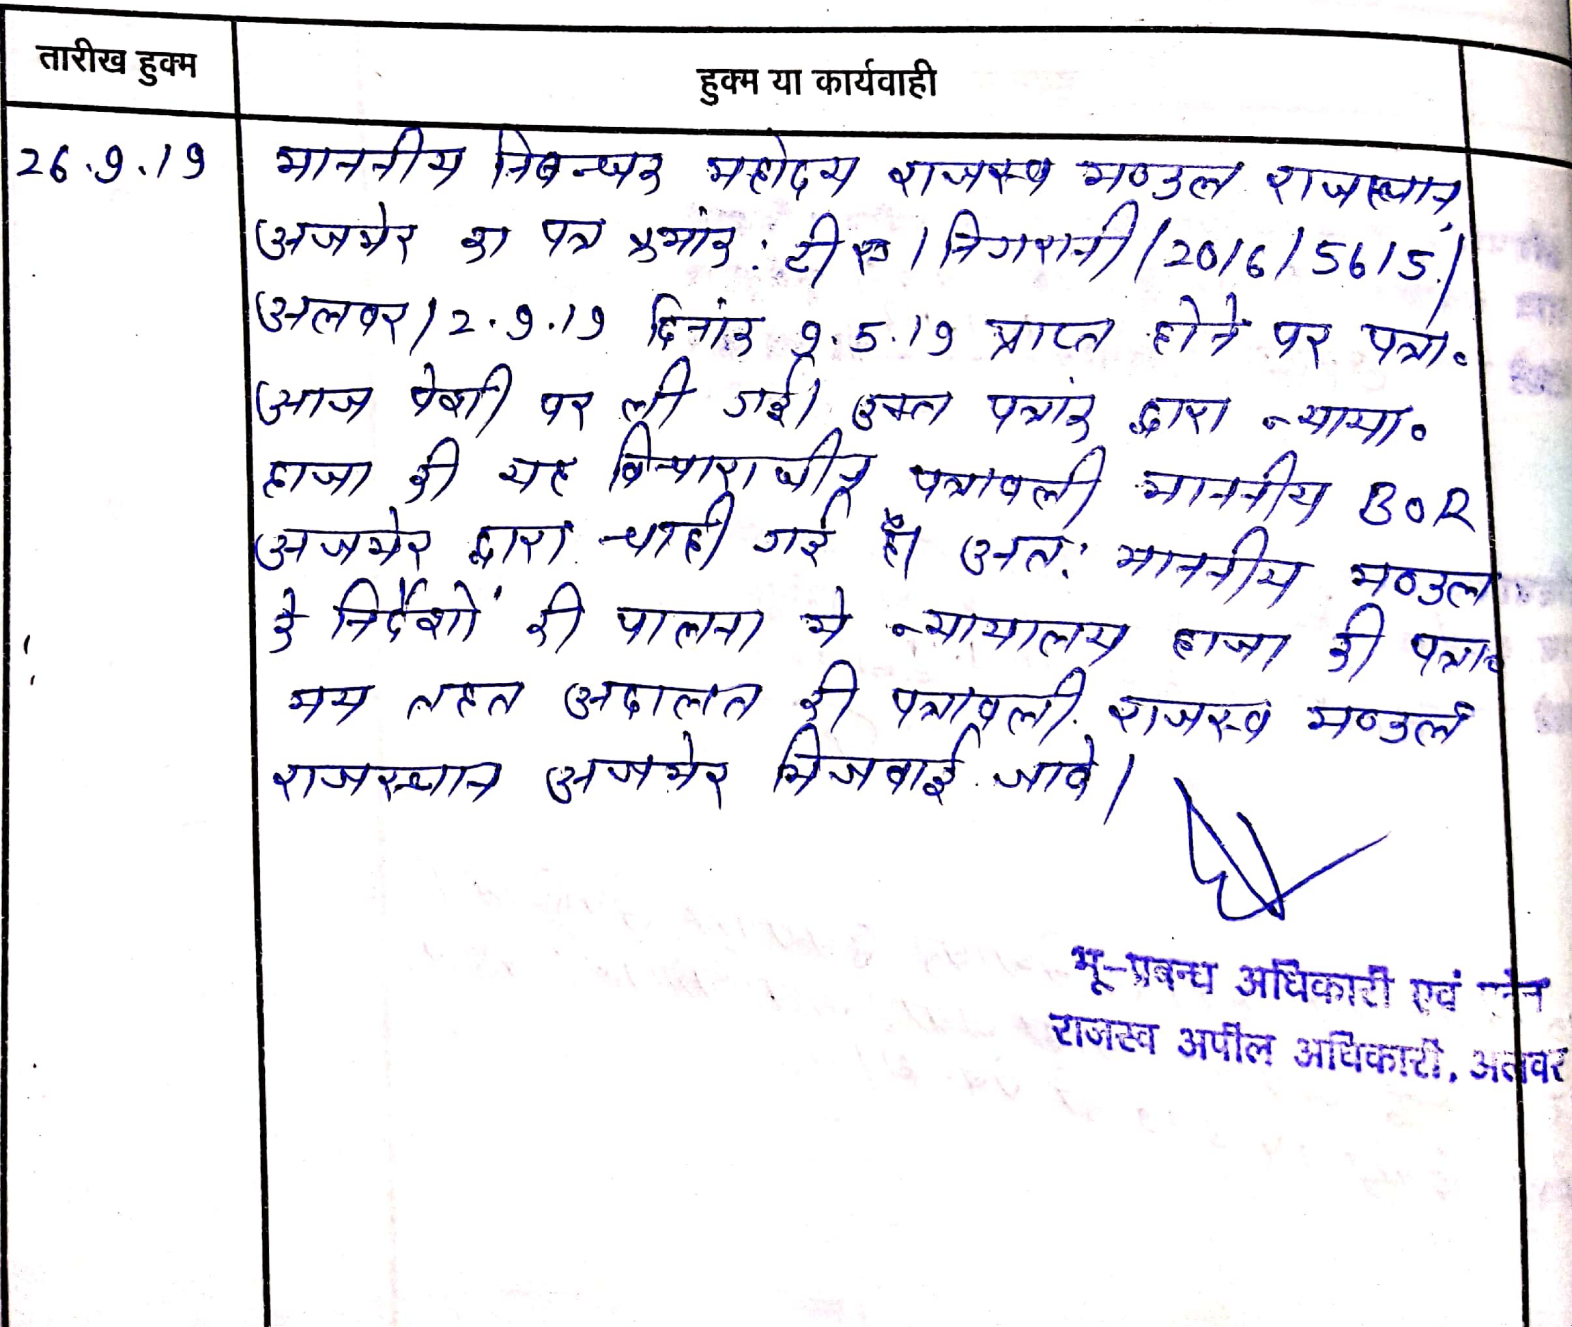 तारीख हुक्म
हुक्म या कार्यवाही
26.9.19
माननीय निबन्धक महोदय राजस्व मण्डल राजस्थान,
अजमेर का पत्र क्रमांक: टीए/निगरानी/2016/5615/
अलवर/2.9.19 दिनांक 9.5.19 प्राप्त होने पर पत्रा०
आज पेशी पर ली गई। उक्त पत्रांक द्वारा न्याया०
हाजा की यह विचाराधीन पत्रावली माननीय BOR
अजमेर द्वारा चाही गई है। अत: माननीय मण्डल
के निर्देशों की पालना मे न्यायालय हाजा की पत्रा०
मय तहत अदालत की पत्रावली राजस्व मण्डल
राजस्थान अजमेर भिजवाई जावे।
भू-प्रबन्ध अधिकारी एवं
राजस्व अपील अधिकारी, अलवर